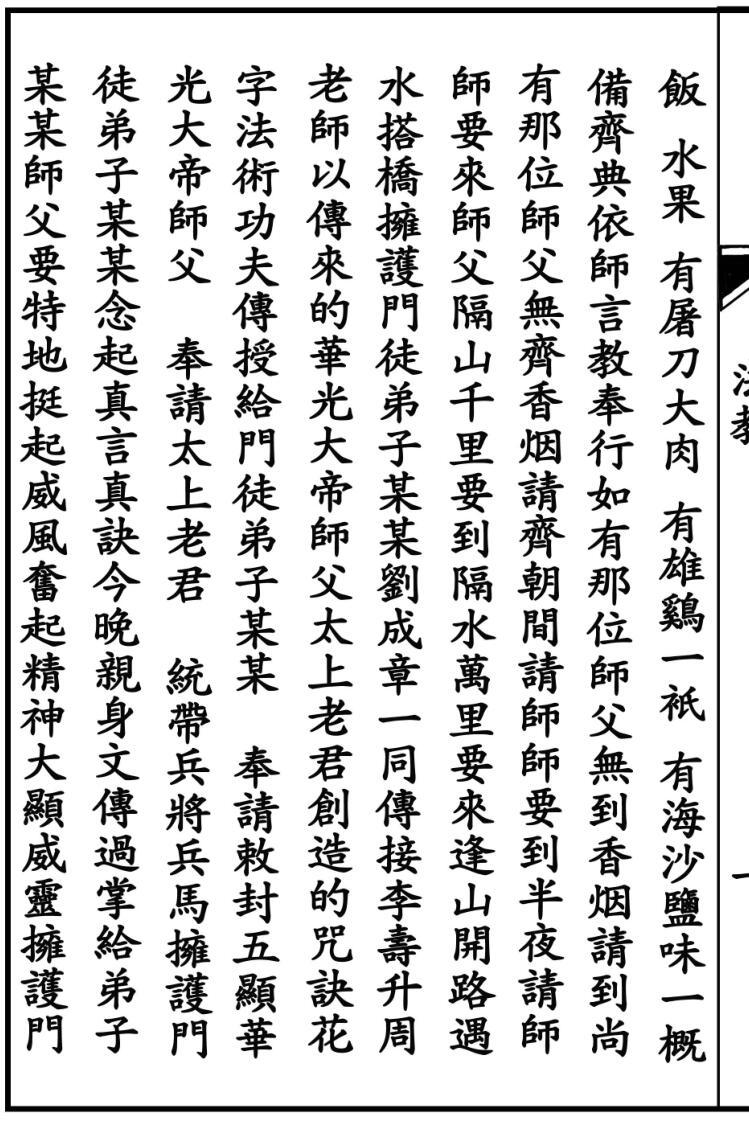 飯 水果 有屠刀大肉 有雄鷄一衹 有海沙鹽味一概
備齊典依師言教奉行如有那位師父無到香烟請到尚
有那位師父無齊香烟請齊朝間請師師要到半夜請師
師要來師父隔山千里要到隔水萬里要來逢山開路遇
水搭橋擁護門徒弟子某某劉成章一同傳接李壽升周
老師以傳來的華光大帝師父太上老君創造的咒訣花
字法術功夫傳授給門徒弟子某某 奉請敕封五顯華
光大帝師父 奉請太上老君 統帶兵將兵馬擁護門
徒弟子某某念起真言真訣今晚親身文傳過掌給弟子
某某師父要特地挺起威風奮起精神大顯威靈擁護門